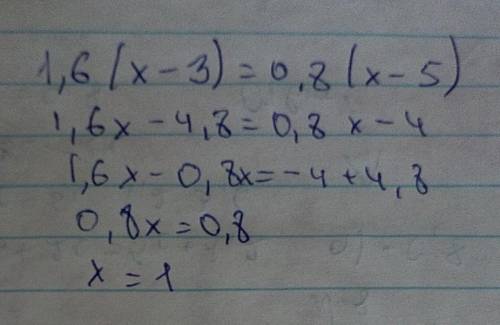 1,6(x-3)=0,8(x-5)
1,6x-4,8=0,8x-4
1,6x-0,8x=-4+4,8
0,8x=0,8
x=1